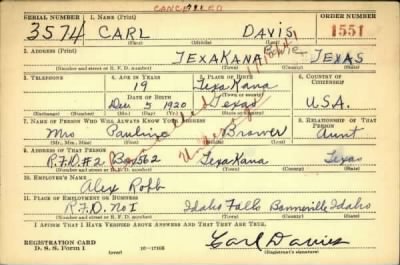 CANCELLED
SERIAL NUMBER 1. NAME (Print) ORDER NUMBER
3574 CARL DAVIS 1551
(First) (Middle) (Last)
2. ADDRESS (Print)
TEXAKANA TEXAS
(Number and street or R. F. D. number) (Town) (County) (State)
3. TELEPHONE 4. AGE IN YEARS 5. PLACE OF BIRTH 6. COUNTRY OF CITIZENSHIP
19 TexaKana
DATE OF BIRTH (Town or county)
Dec 5 1920 Texas U.S.A.
(Exchange) (Number) (Mo.) (Day) (Yr.) (State or country)
7. NAME OF PERSON WHO WILL ALWAYS KNOW YOUR ADDRESS 8. RELATIONSHIP OF THAT PERSON
Mrs Brower Aunt
(Mr., Mrs., Miss) (First) (Middle) (Last)
9. ADDRESS OF THAT PERSON
R.F.D. #2 Box 562 TexaKana Texas
(Number and street or R. F. D. number) (Town) (County) (State)
10. EMPLOYER'S NAME
Alex Robb
11. PLACE OF EMPLOYMENT OR BUSINESS
R.F.D. No 1 Idaho Falls Bonneville Idaho
(Number and street or R. F. D. number) (Town) (County) (State)
I AFFIRM THAT I HAVE VERIFIED ABOVE ANSWERS AND THAT THEY ARE TRUE.
REGISTRATION CARD
D. S. S. Form 1 (over) 16—17105 Carl Davis
(Registrant's signature)
Cancelled
Under age